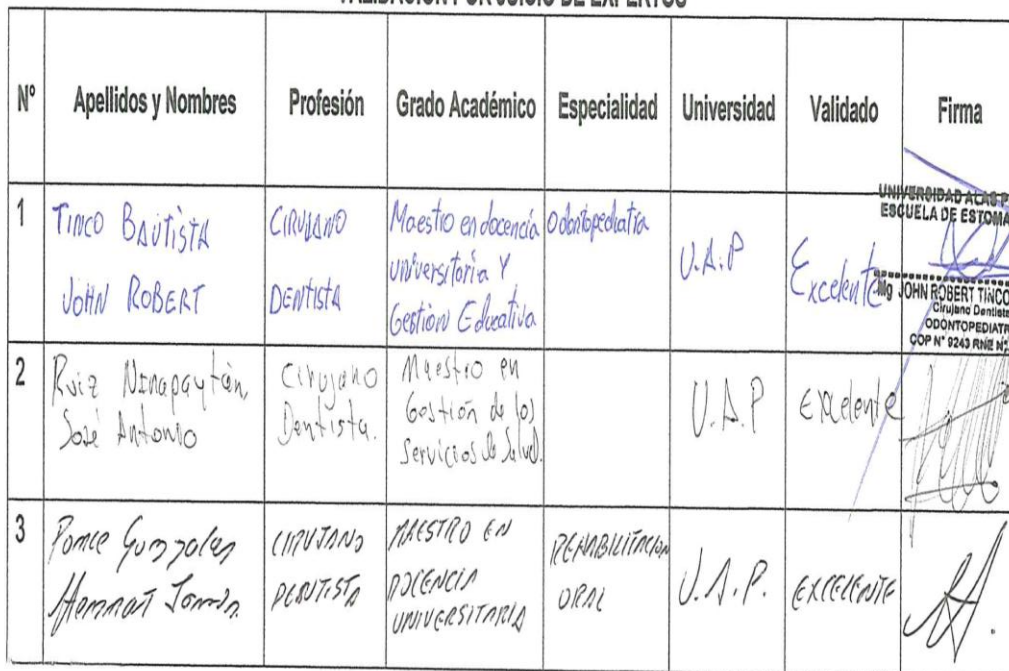 VALIDACIÓN POR JUICIO DE EXPERTOS
N° Apellidos y Nombres Profesión Grado Académico Especialidad Universidad Validado Firma
1 TINCO BAUTISTA JOHN ROBERT CIRUJANO DENTISTA Maestro en docencia universitaria Y Gestion Educativa Odontopediatria U.A.P Excelente
UNIVERSIDAD ALAS P
ESCUELA DE ESTOMA
Mg JOHN ROBERT TINCO
Cirujano Dentista
ODONTOPEDIATR
COP N° 9243 RNE N°
2 Ruiz Ninapaytan, José Antonio Cirujano Dentista. Maestro en Gestión de los Servicios de Salud. U.A.P Excelente
3 Ponce Gonzales CIRUJANO DENTISTA MAESTRO EN DOCENCIA UNIVERSITARIA REHABILITACION ORAL U.A.P. EXCELENTE